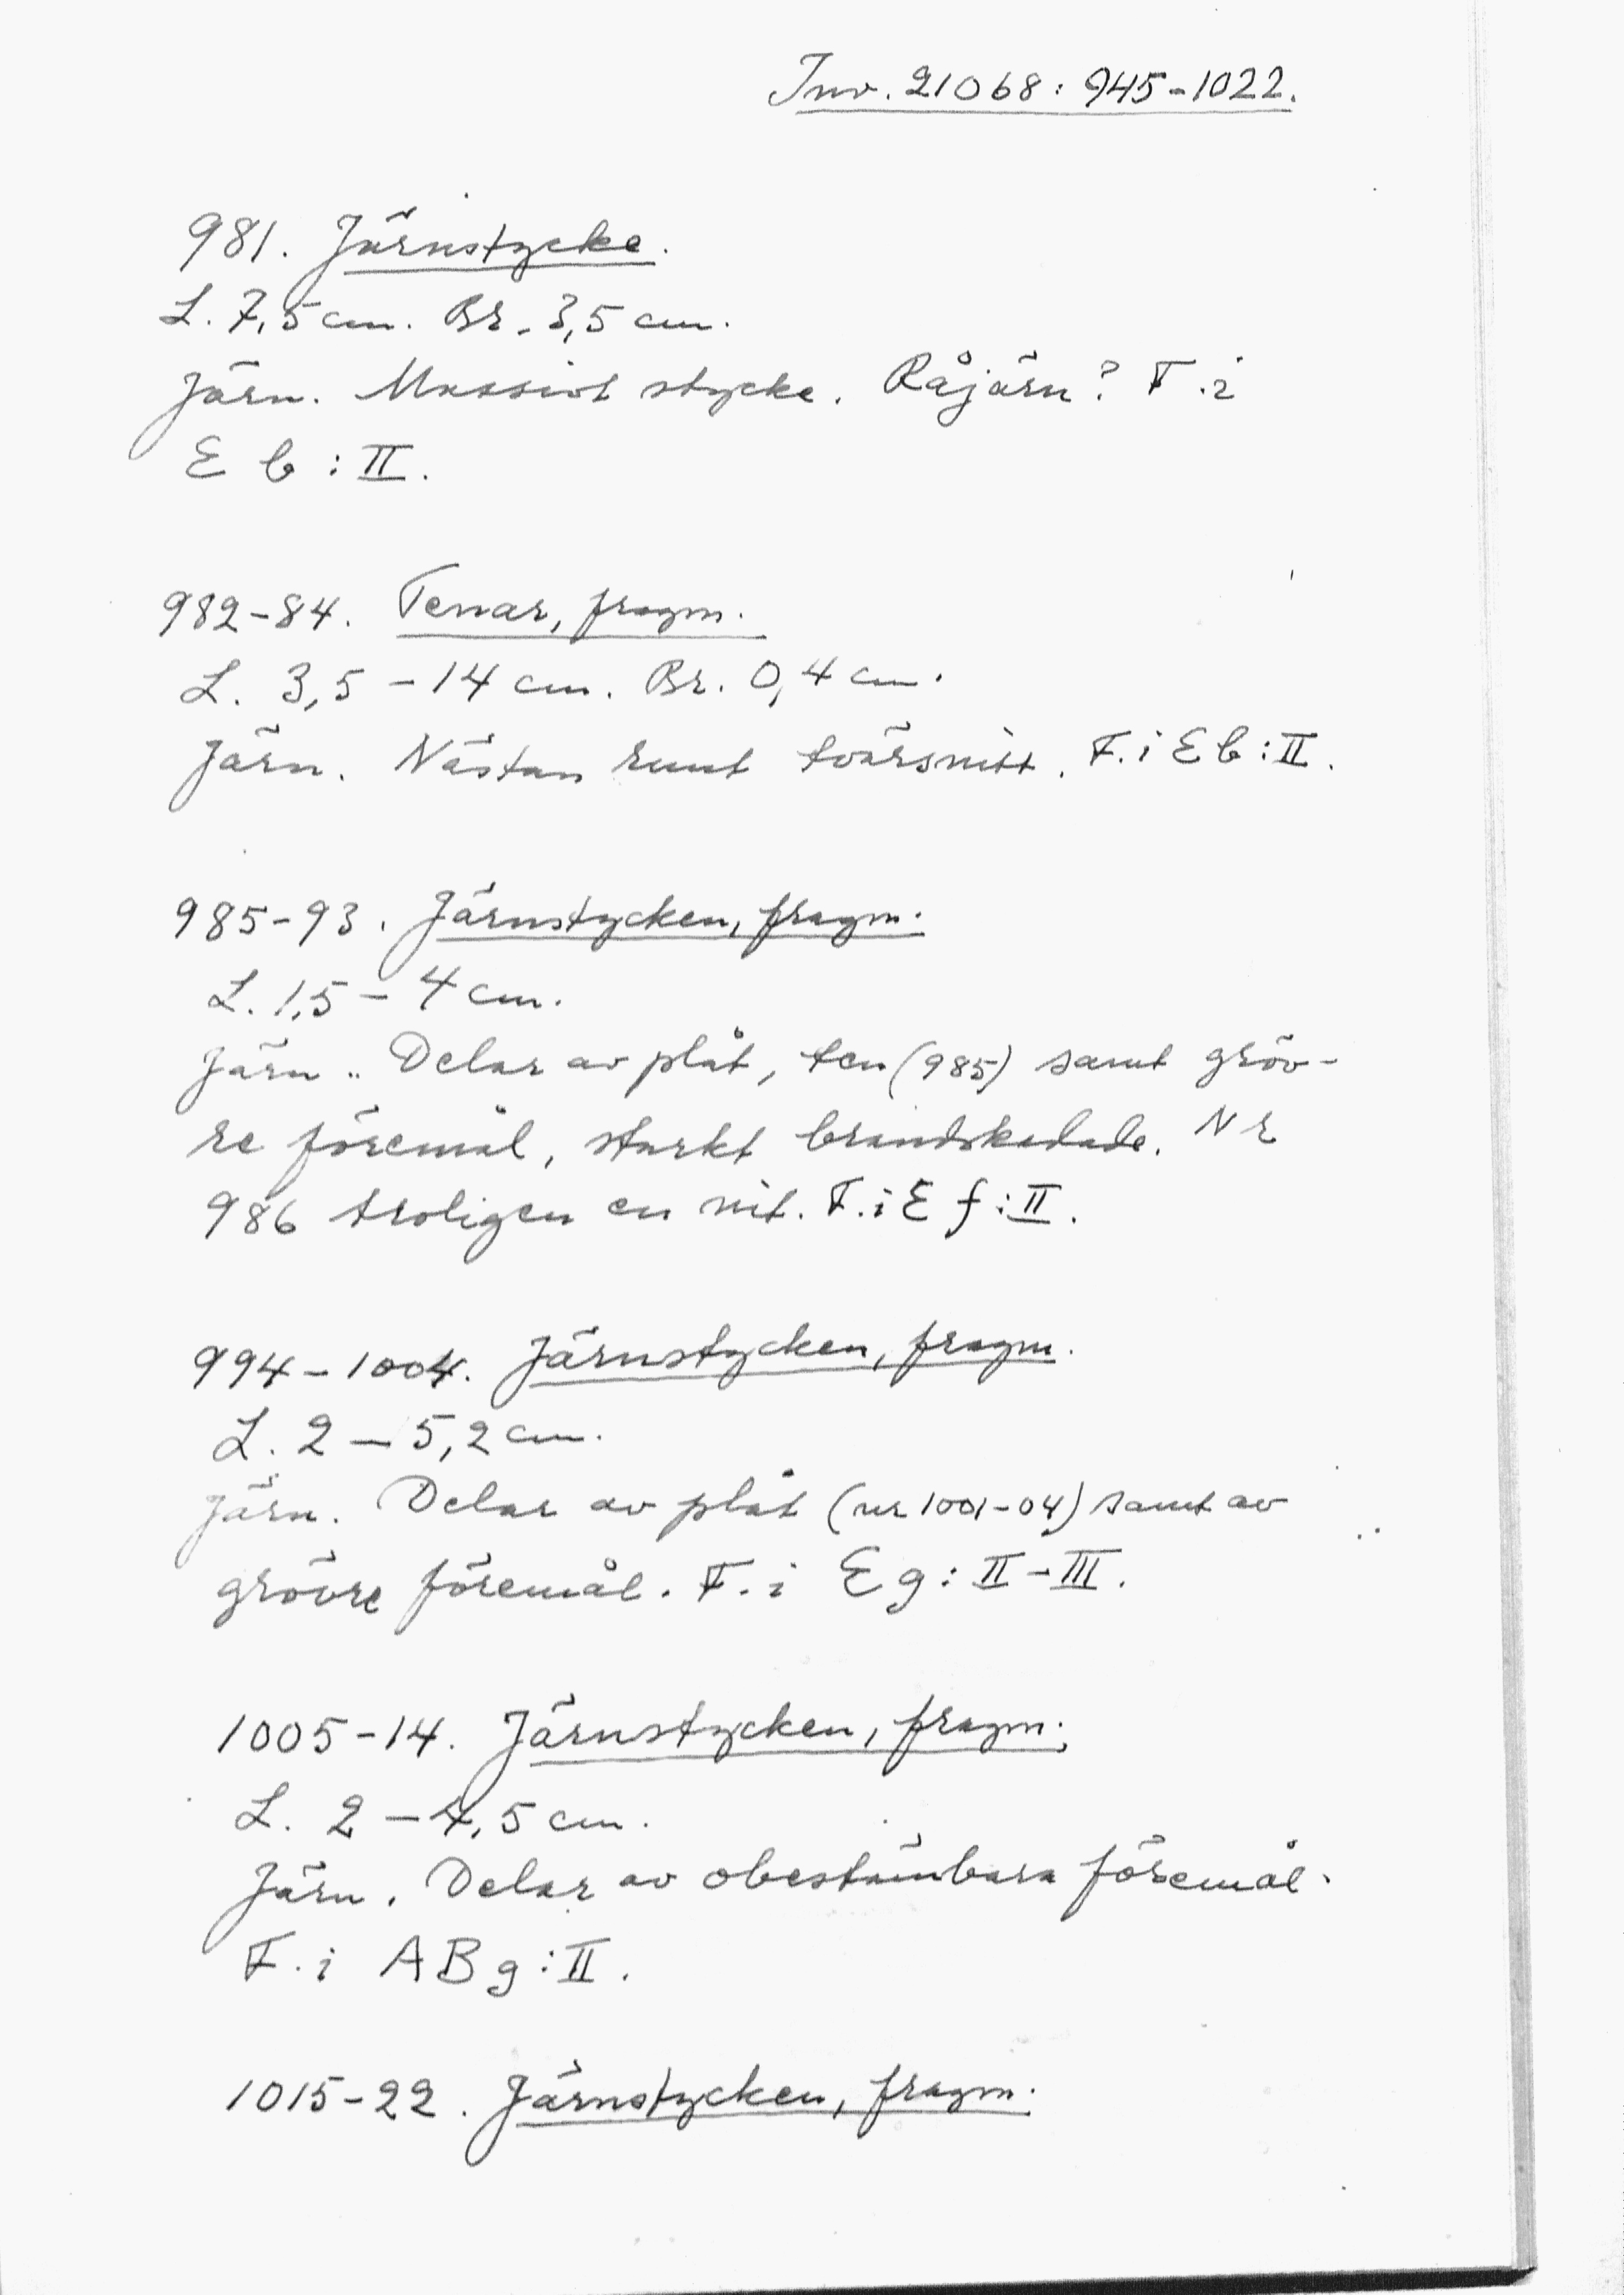 Inv. 21068: 945-1022.
981. Järnstycke.
L. 7,5 cm. Br. 3,5 cm.
Järn. Massivt stycke. Råjärn? F. i
E b : II.
982-84. Tenar, fragm.
L. 3,5 - 14 cm. Br. 0,4 cm.
Järn. Nästan runt tvärsnitt. F. i E b : II.
985-93. Järnstycken, fragm.
L. 1,5 - 4 cm.
Järn. Delar av plåt, ten (985) samt gröv-
re föremål, starkt brandskadade. Nr
986 troligen en nit. F. i E f : II.
994-1004. Järnstycken, fragm.
L. 2 - 5,2 cm.
Järn. Delar av plåt (nr 1001-04) samt av
grövre föremål. F. i E g : II - III.
1005-14. Järnstycken, fragm.
L. 2 - 4,5 cm.
Järn. Delar av obestämbara föremål.
F. i A B g : II.
1015-22. Järnstycken, fragm.